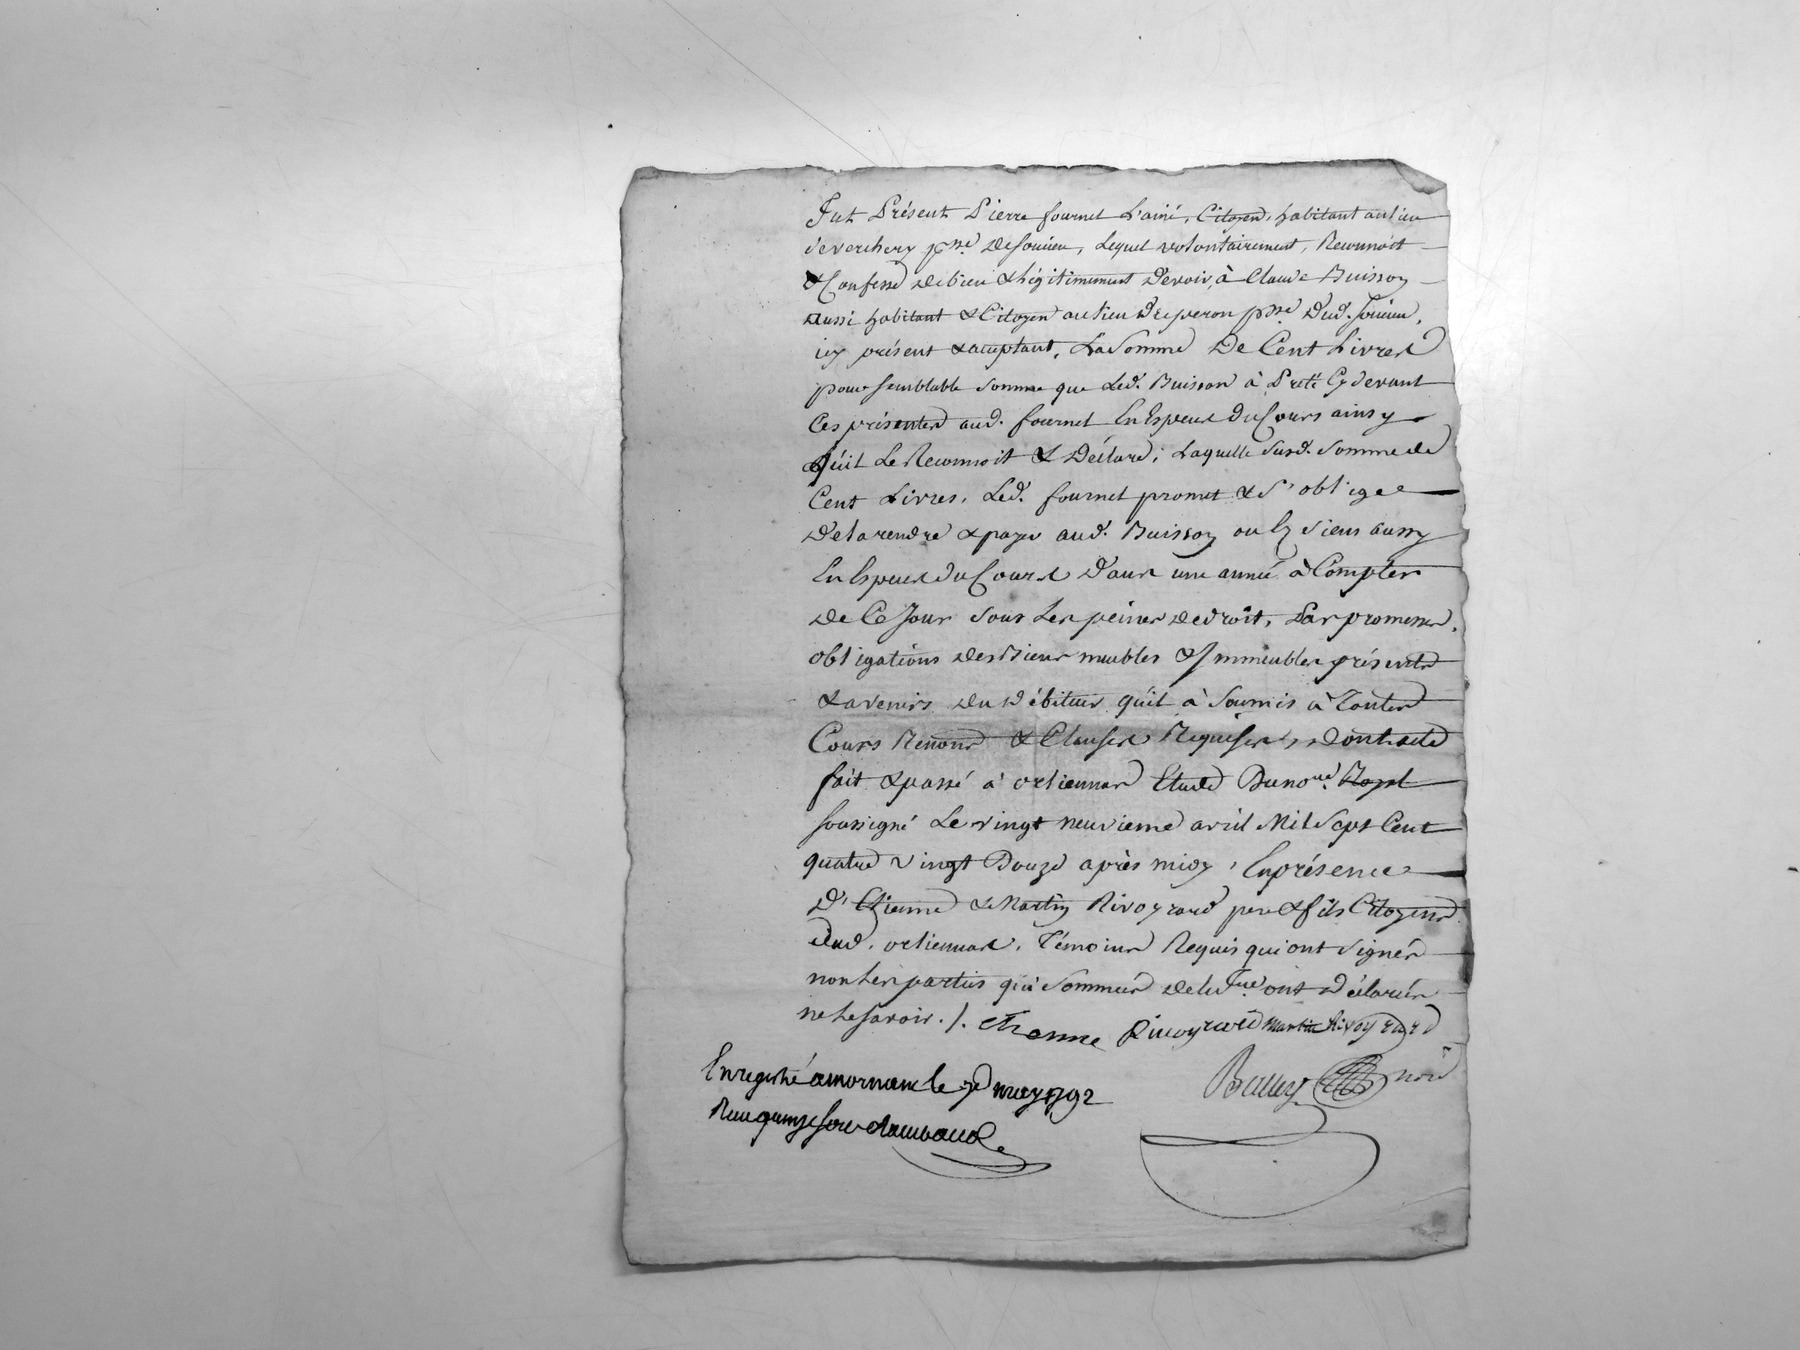 Fut Présent Pierre fournel L'ainé, Citoyen, habitant au lieu
de verchery psse de Soucieu, Lequel volontairement, Reconnoit
& Confesse de bien & légitimement devoir, à Claude Buisson
aussi habitant & Citoyen au lieu du peron psse dud. Soucieu,
icy présent & acceptant, La Somme De Cent Livres
pour semblable somme que Led. Buisson à Preté Cy devant
Ces présentes aud. fournel En Espece du Cours ainsy
qu'il Le Reconnoit & Déclare; Laquelle susd. somme de
Cent Livres, Led. fournel promet & S'oblige
De la rendre & payer aud. Buisson ou Es siens aussy
En Espece du Cours dans une année à Compter
de Ce Jour sous Les peines de droit, Par promesses,
obligations des biens meubles & Immeubles présents
& avenirs du Débiteur qu'il à Soumis à Toutes
Cours Renons & Clauses Requises, dont acte
fait & passé à orlienas Etude Du nore. Royal
soussigné Le vingt neuvieme avril Mil Sept Cent
quatre vingt Douze après midy, En présence
D'Etienne & Martin Rivoyrard pere & fils Citoyens
dud. orlienas, Témoins Requis qui ont signés
non Les parties qui sommées de le fre ont déclarées
ne Le savoir ./. Etienne Rivoyrard Martin Rivoyrard
Enregistré a mornant le 7e may 1792
Reçu quinze sous